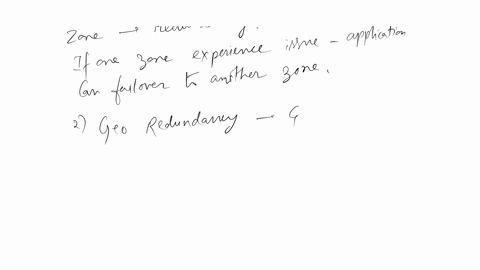 Zone →
If one zone experience issue - application
Can failover to another zone.
2) Geo Redundancy → G